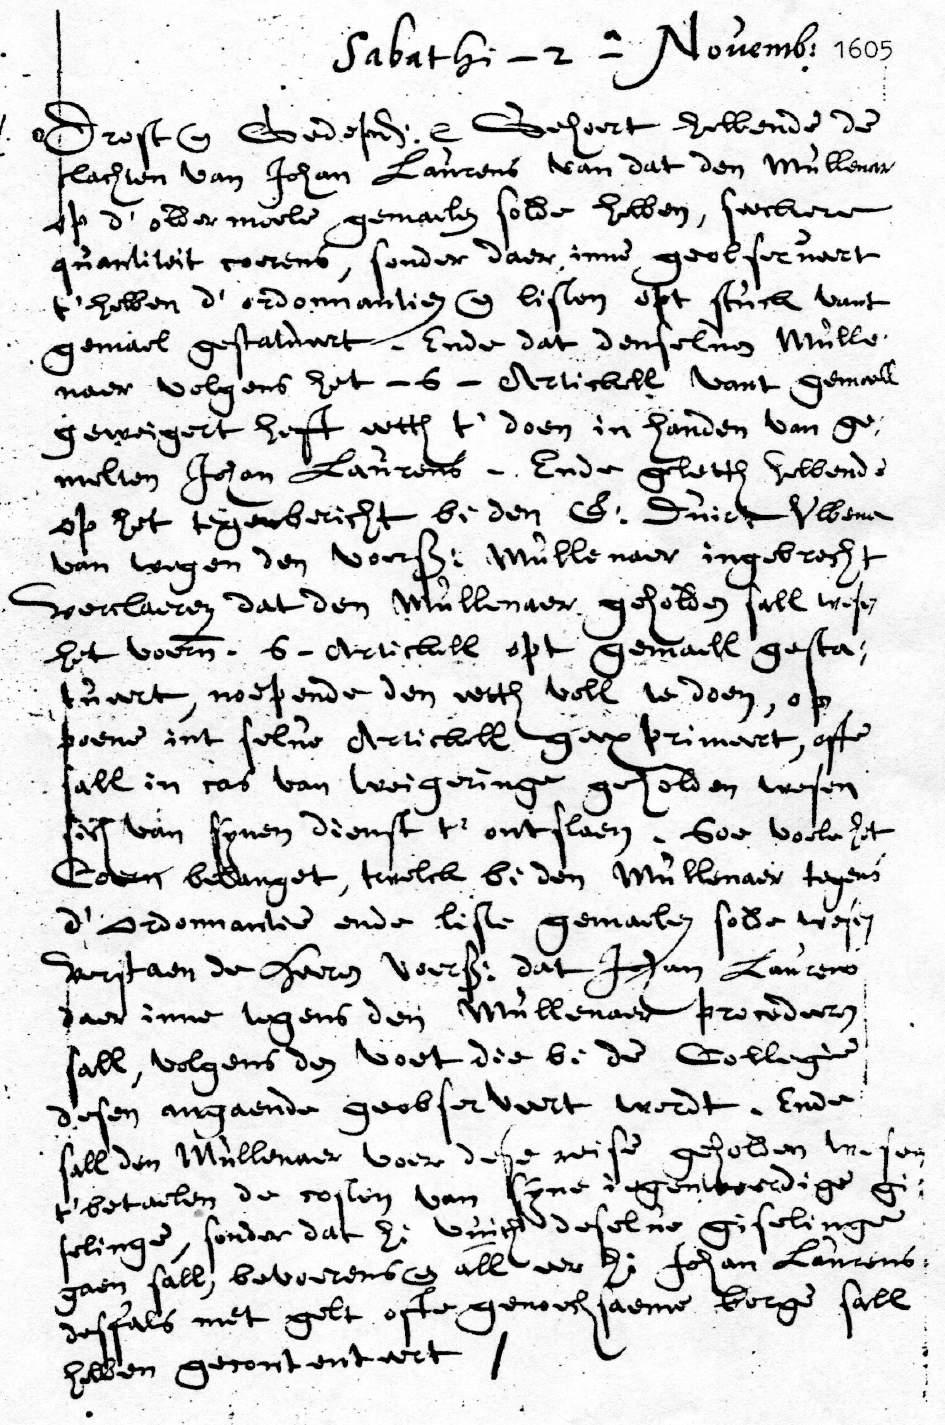 Sabathi – 2 a – Novemb: 1605
Drost en Gedep: Gehoert hebbende de
clachten van Johan Laurens van dat den Mullenar
op d' older moele gemaelen solde hebben, seeckere
quantiteit coerens, sonder daer inne geobserveert
t' hebben d' ordonnantien en listen opt stuck vant
gemael gestatuert. Ende dat denselven Mulle
naer volgens het – 6 – Artickell vant gemaell
geweigert heft eeth t' doen in handen van ge:
melten Johan Laurens – Ende geleth hebbende
op het tegenbericht bi den G:
van wegen den voers: Mullenaer ingebrecht
verclaeren dat den Mullenaer geholden sall wesen
het voern. 6 – Artickell opt gemaell gesta:
tueert, noepende den eeth voll te doen, op
poene int selve Artickell geexprimeert, offte
sall in cas van weigeringe geholden wesen
sich van synen dienst t' ontslaen. Soe voele het
Coern belanget, twelck bi den Mullenaer tegens
d' Ordonnantie ende liste gemaelen solde wesen
verstaen de Heeren voers: dat Johan Laurens
daer inne tegens den Mullenaer procederen
sall, volgens den voet die bi de Collegie
desen angaende geobserveert werdt. Ende
sall den Mullenaer voer dese reise geholden wesen
t' betaelen de costen van syne iegenwoordige gi:
selinge, sonder dat hi uuith deselve giselinge
gaen sall, bevoerens en all eer hi Johan Laurens
desfals met gelt ofte genoechsaeme borge sall
hebben gecontenteert /